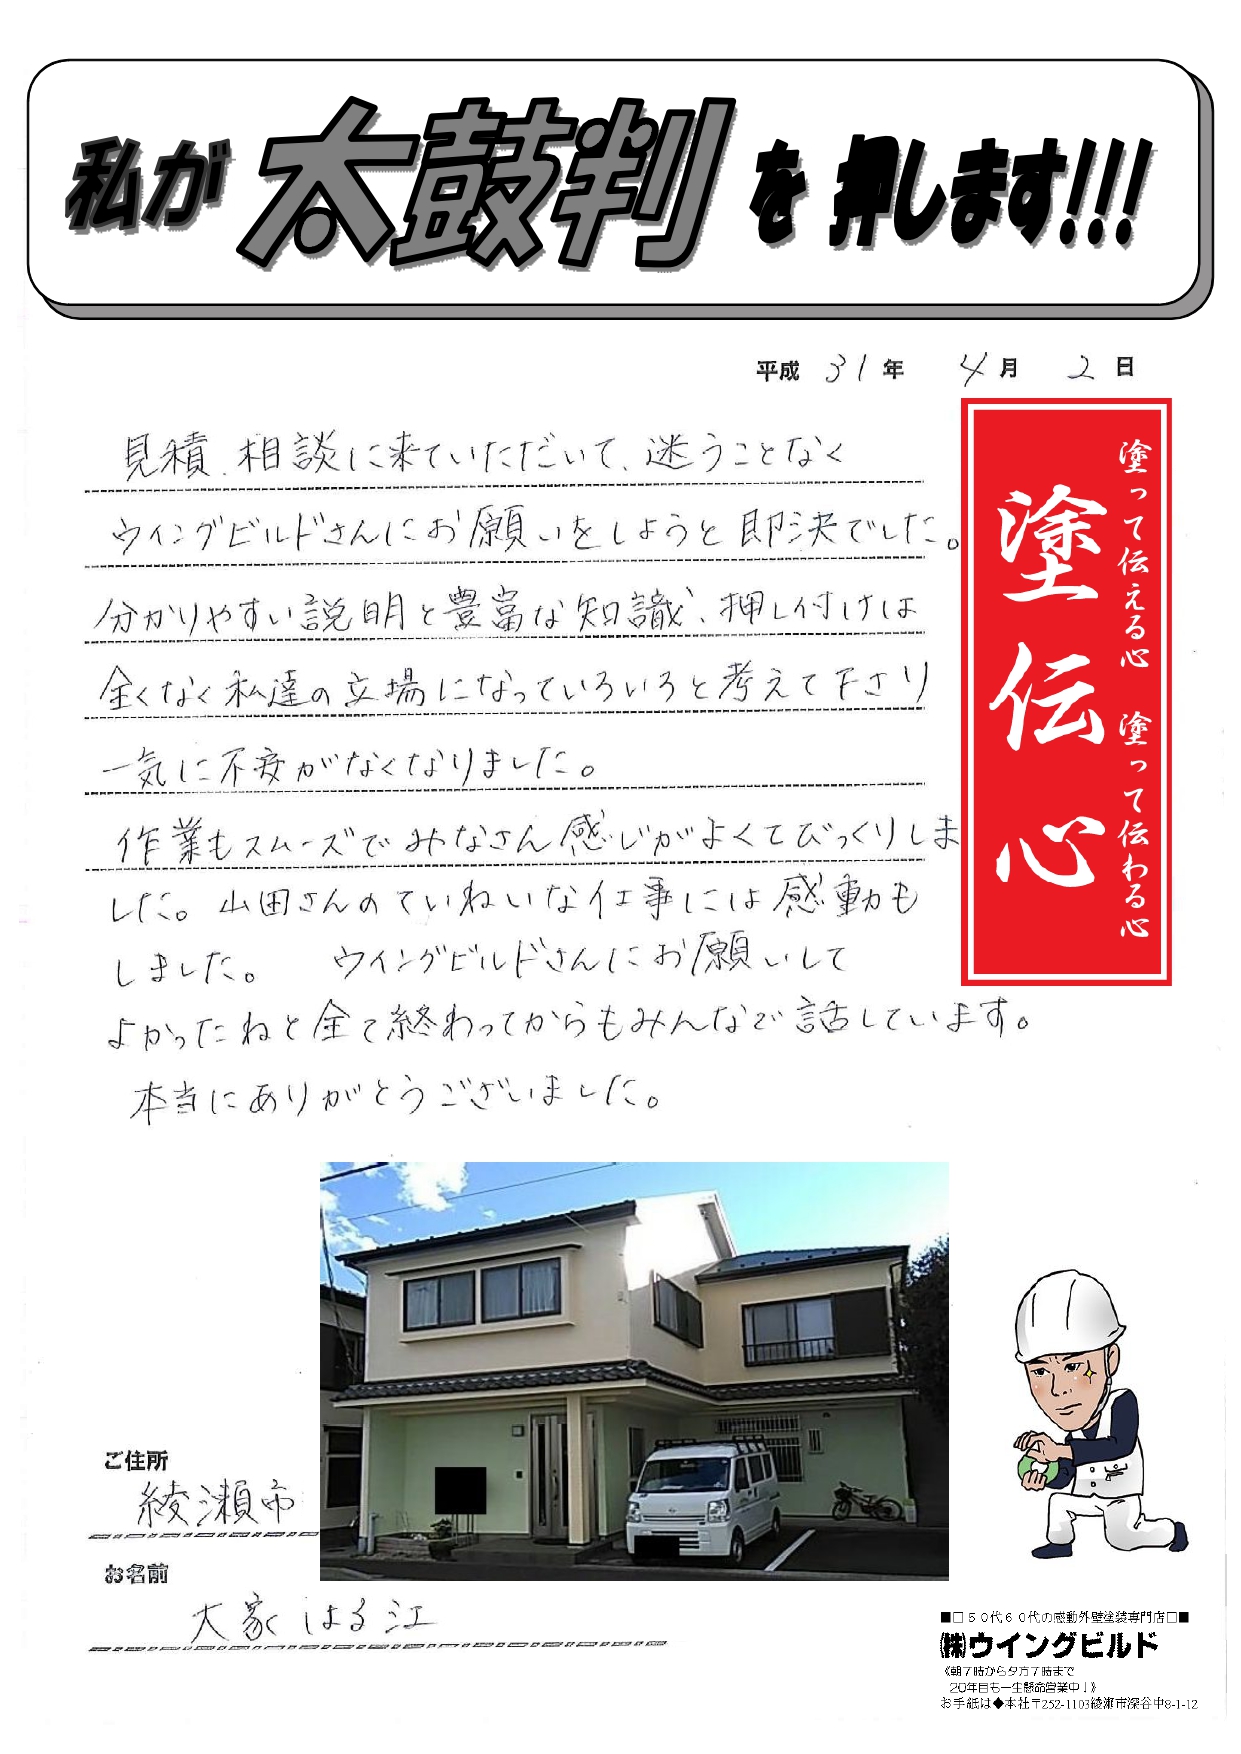 私が太鼓判を押します!!!
平成 31年 4月 2日
見積、相談に来ていただいて、迷うことなく
ウイングビルドさんにお願いをしようと即決でした。
分かりやすい説明と豊富な知識、押し付けは
全くなく私達の立場になっていろいろと考えて下さり
一気に不安がなくなりました。
作業もスムーズでみなさん感じがよくてびっくりしま
した。山田さんのていねいな仕事には感動も
しました。 ウイングビルドさんにお願いして
よかったねと全て終わってからもみんなで話しています。
本当にありがとうございました。
塗って伝える心 塗って伝わる心
塗伝心
ご住所
綾瀬市
お名前
大家はる江
■□50代60代の感動外壁塗装専門店□■
㈱ウイングビルド
《朝7時から夕方7時まで
20年目も一生懸命営業中!》
お手紙は◆本社〒252-1103綾瀬市深谷中8-1-12